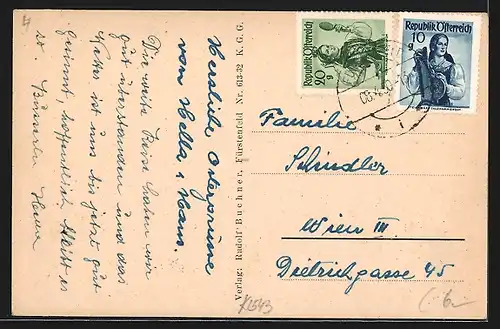 Herzliche Ostergrüsse
von Hella u. Hans.
Die weite Reise haben wir
gut überstanden und das
Wetter ist uns bis jetzt gut
gesinnt, hoffentlich bleibt es
so. Busserln Hans
Verlag: Rudolf Buchner, Fürstenfeld Nr. 613-32 K. G. G.
Republik Österreich
20 g
Republik Österreich
10 g
Familie
Schindler
Wien III.
Dietrichgasse 45